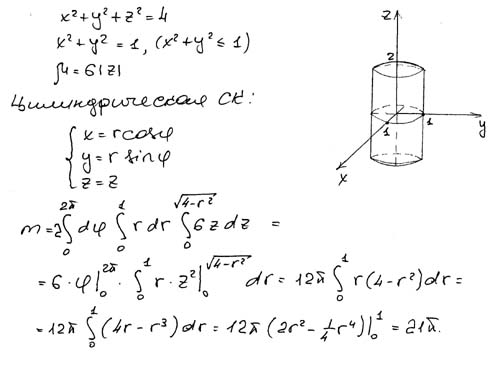 x²+y²+z²=4
x²+y²=1, (x²+y²≤1)
μ=6|z|
Цилиндрическая СК:
{ x=rcosφ
y=r sinφ
z=z
m=2∫₀^{2π} dφ ∫₀^{1} r dr ∫₀^{√(4-r²)} 6z dz =
=6·φ|₀^{2π} · ∫₀^{1} r·z²|₀^{√(4-r²)} dr = 12π ∫₀^{1} r(4-r²)dr =
=12π ∫₀^{1} (4r-r³)dr = 12π (2r²-¼r⁴)|₀^{1} = 21π.
z
2
1
1
y
x